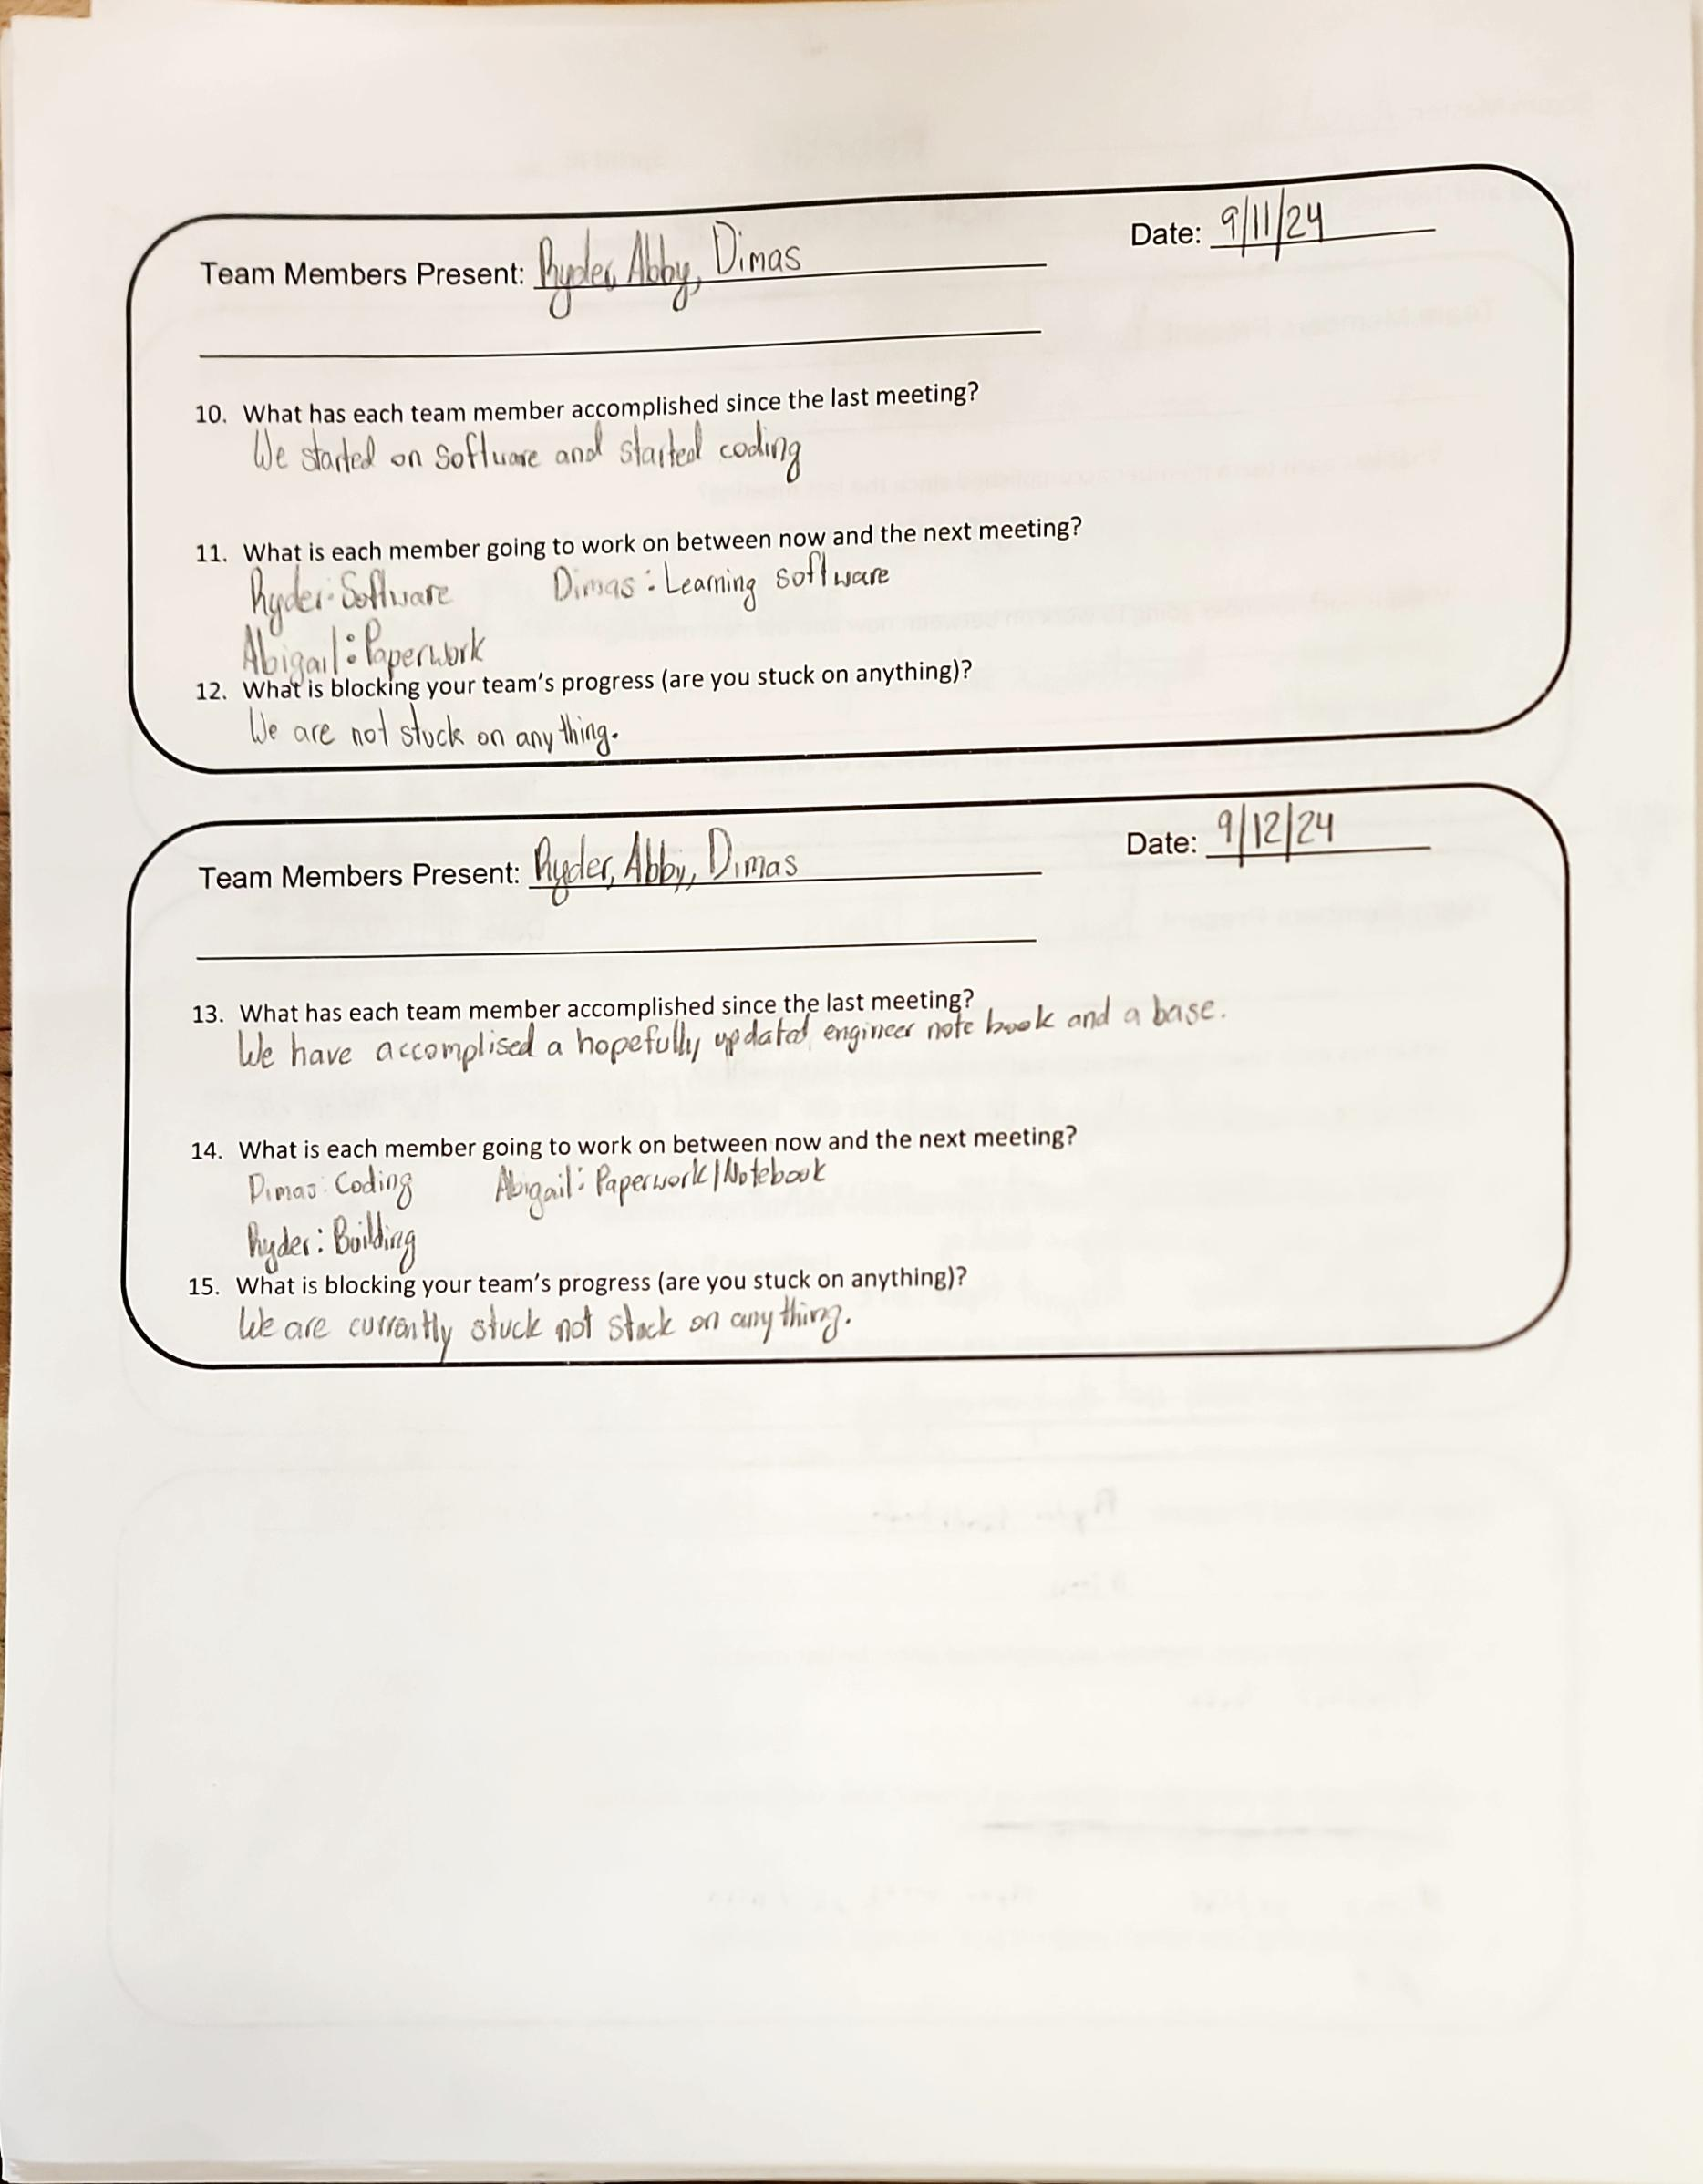 Date: 9/11/24
Team Members Present: Ryder, Abby, Dimas
10. What has each team member accomplished since the last meeting?
We started on software and started coding
11. What is each member going to work on between now and the next meeting?
Ryder: Software Dimas: Learning software
Abigail: Paperwork
12. What is blocking your team's progress (are you stuck on anything)?
We are not stuck on anything.
Date: 9/12/24
Team Members Present: Ryder, Abby, Dimas
13. What has each team member accomplished since the last meeting?
We have accomplised a hopefully updated engineer note book and a base.
14. What is each member going to work on between now and the next meeting?
Dimas: Coding Abigail: Paperwork/Notebook
Ryder: Building
15. What is blocking your team's progress (are you stuck on anything)?
We are currently stuck not stuck on anything.